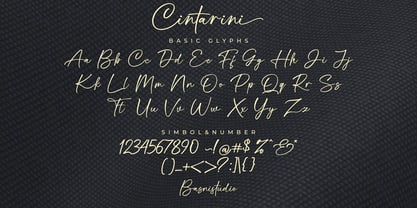 Cintarini
BASIC GLYPHS
Aa Bb Cc Dd Ee Ff Gg Hh Ii Jj
Kk Ll Mm Nn Oo Pp Qq Rr Ss
Tt Uu Vv Ww Xx Yy Zz
SIMBOL&NUMBER
1234567890 -!@#$%^&*
()_+<>?:|\{}
Basnistudio